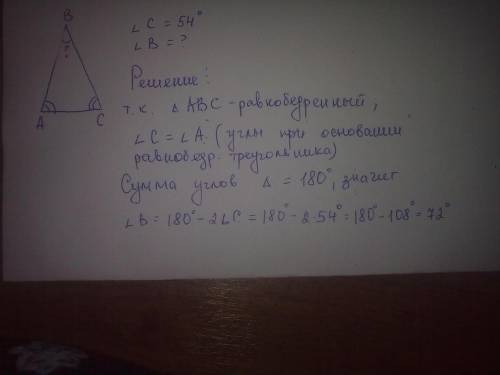 B
?
A
C
∠C = 54°
∠B = ?
Решение:
т.к. △ABC - равнобедренный,
∠C = ∠A. (углы при основании
равнобедр. треугольника)
Сумма углов △ = 180°, значит
∠B = 180° - 2∠C = 180° - 2·54° = 180° - 108° = 72°